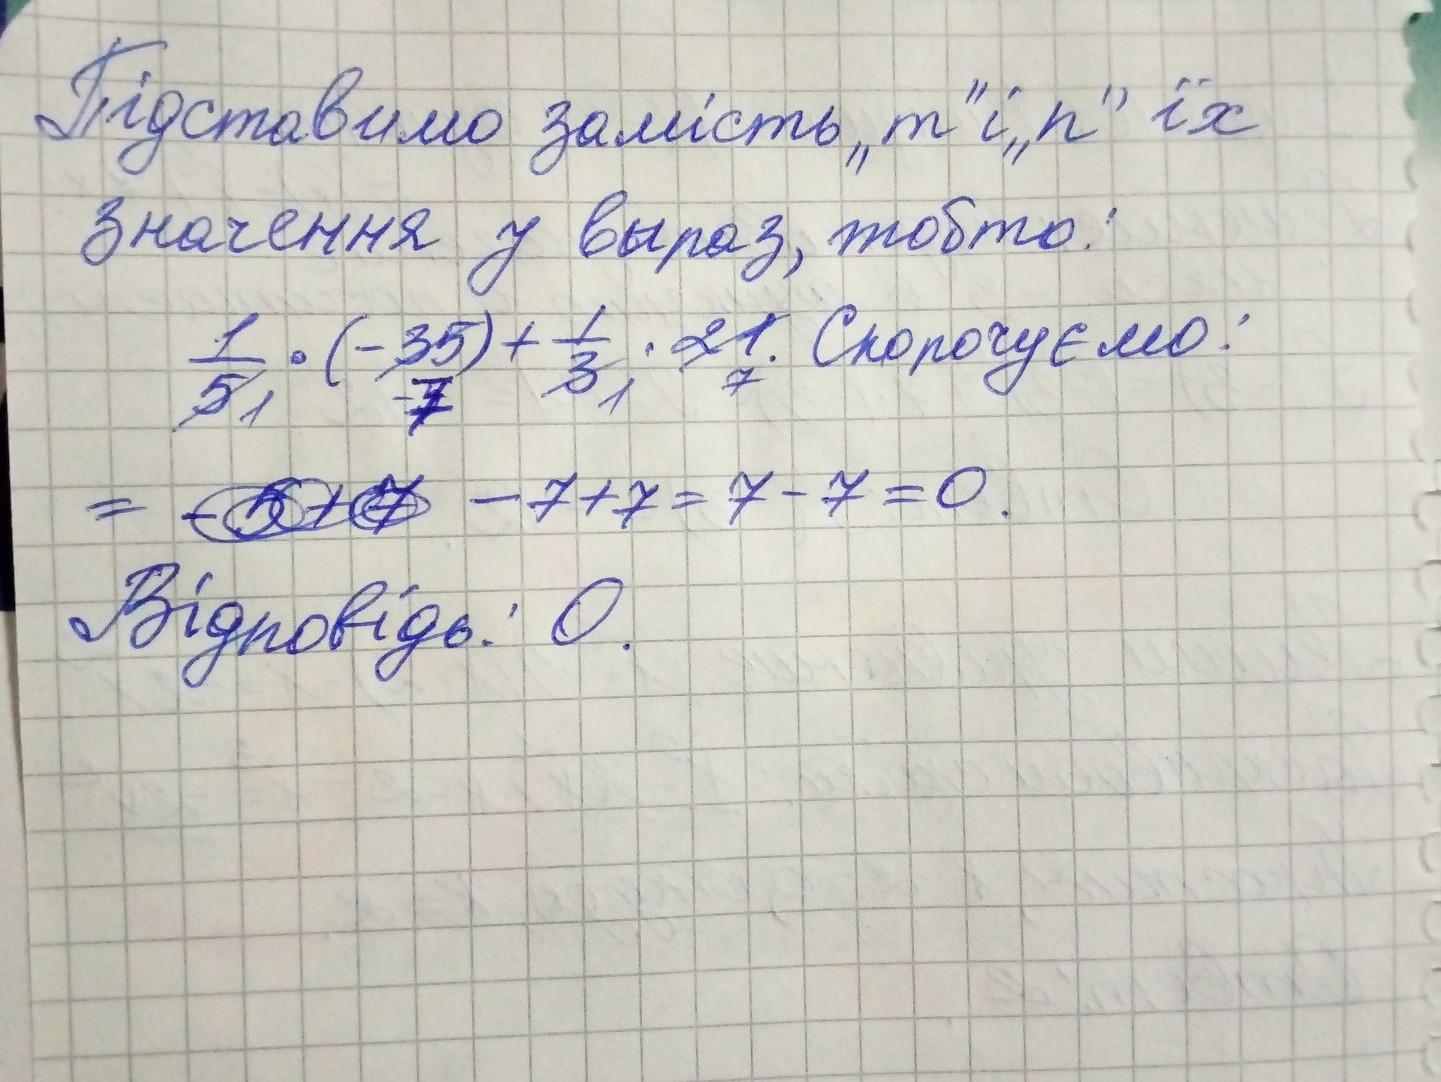 Підставимо замість „m" і „n" їх
значення у выраз, тобто:
1/5 1 · (-35) -7 + 1/3 1 · 21 7. Скорочуємо:
= -7+7=7-7=0.
Відповідь: 0.